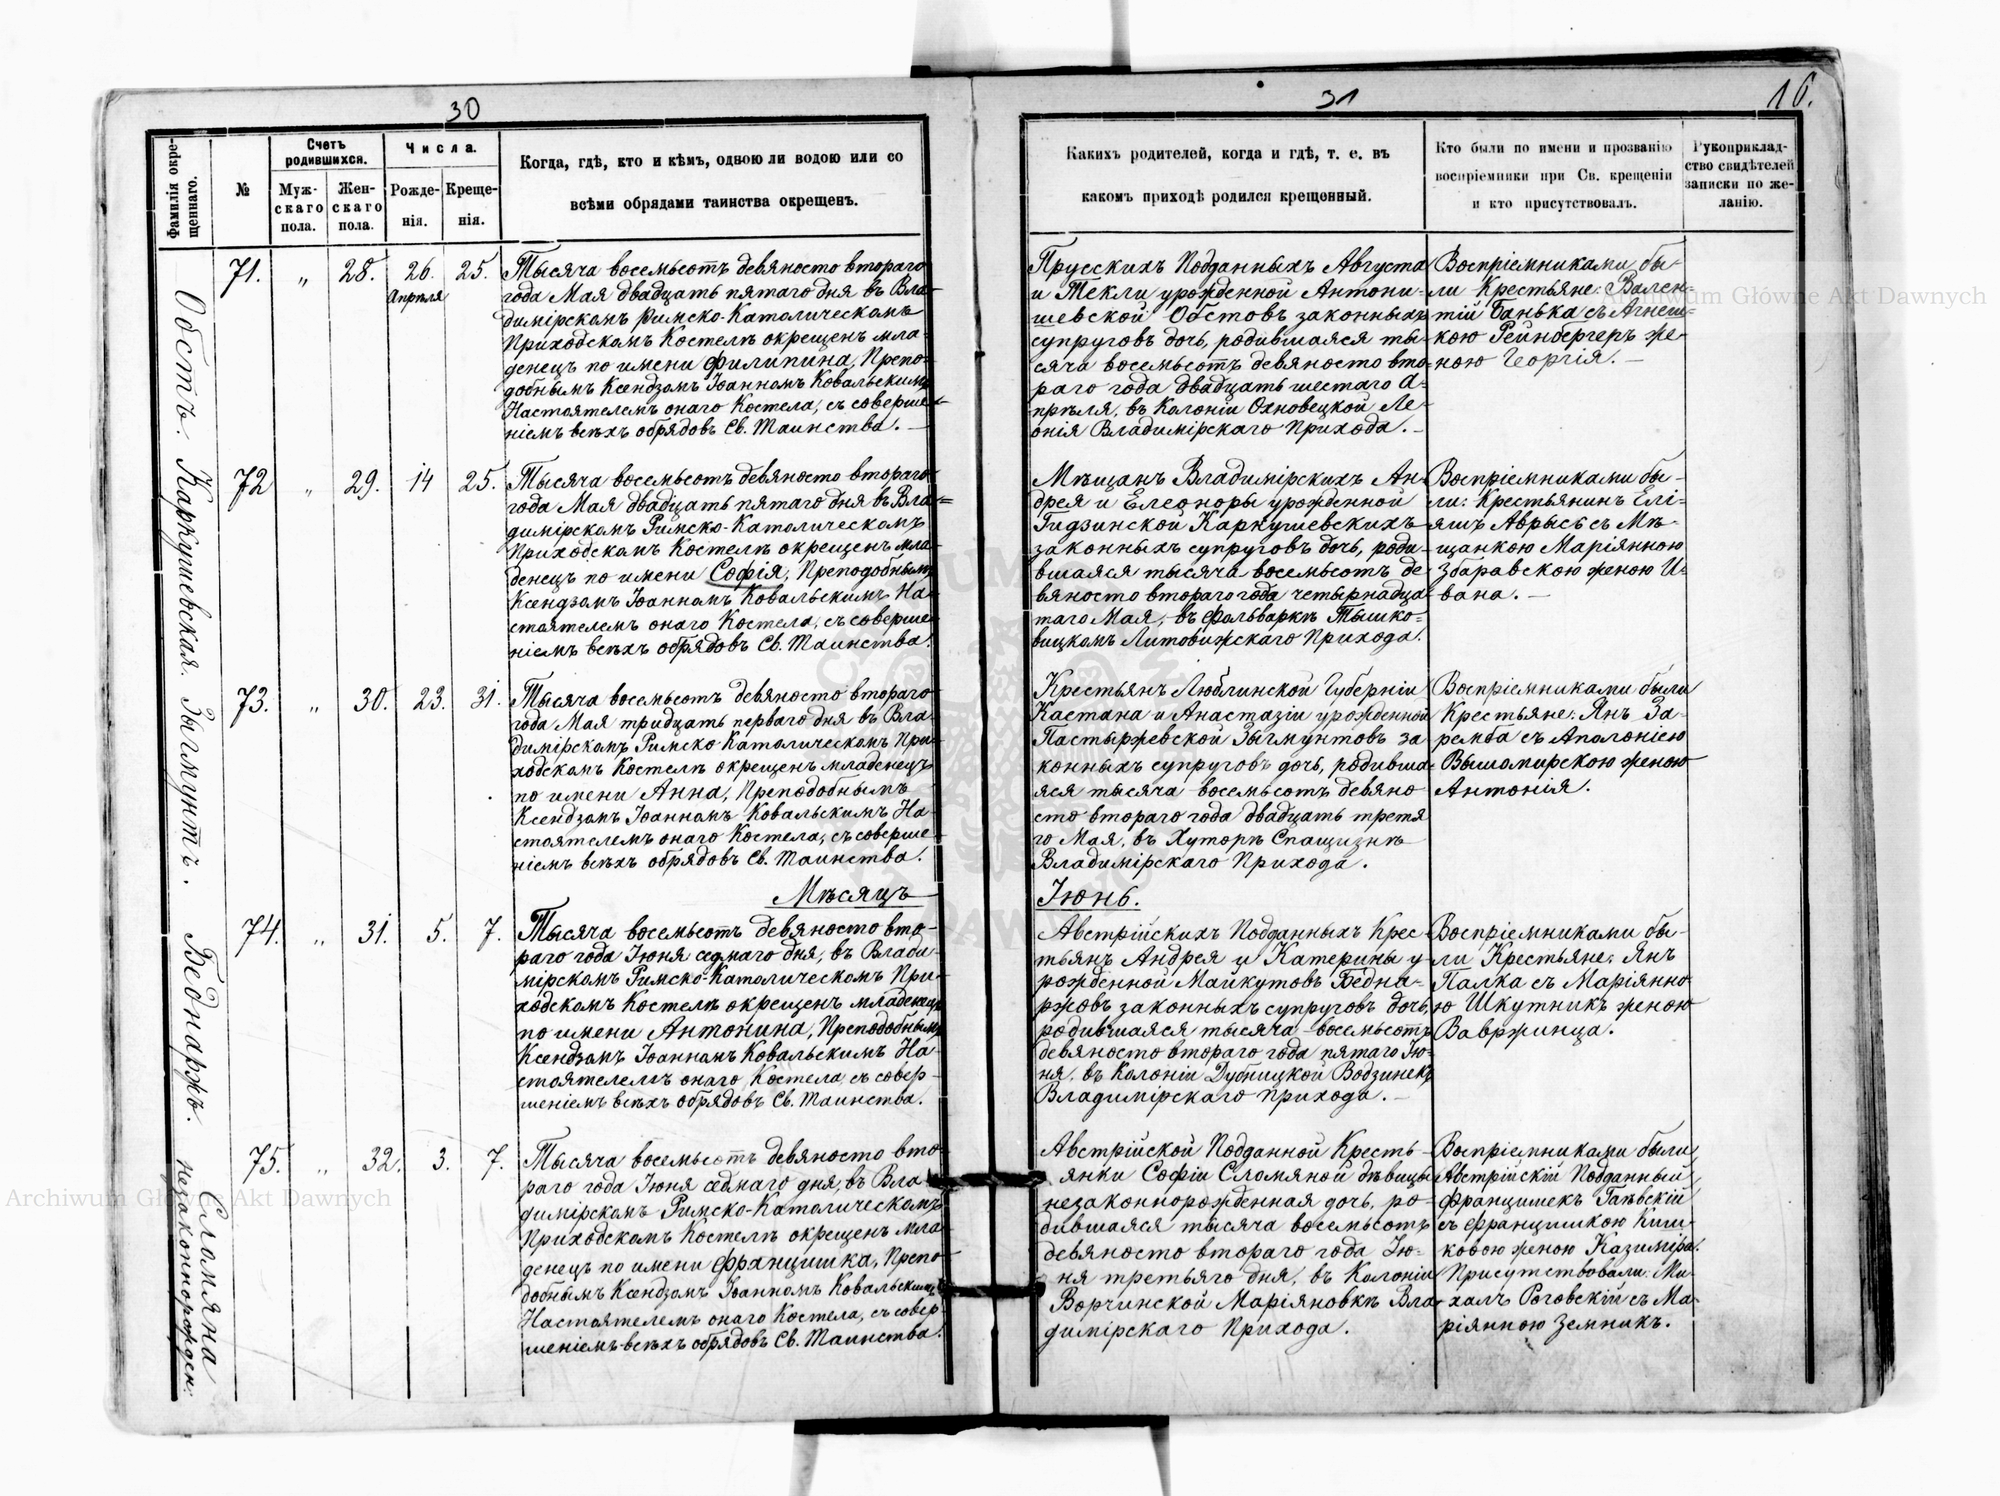 30
Фамилія окре-
щеннаго.
№
Счетъ
родившихся.
Муж-
скаго
пола.
Жен-
скаго
пола.
Числа.
Рожде-
нія.
Креще-
нія.
Когда, гдѣ, кто и кѣмъ, одною ли водою или со
всѣми обрядами таинства окрещенъ.
Обстъ.
71.
„
28.
26.
Апрѣля
25.
Тысяча восемьсотъ девяносто втораго
года Мая двадцать пятаго дня въ Вла-
димірскомъ Римско-Католическомъ
Приходскомъ Костелѣ окрещенъ мла-
денецъ по имени Филипина, Препо-
добнымъ Ксендзомъ Іоанномъ Ковальскимъ
Настоятелемъ онаго Костела, съ соверше-
ніемъ всѣхъ обрядовъ Св. Таинства.
Каркушевская.
72
„
29.
14
25.
Тысяча восемьсотъ девяносто втораго
года Мая двадцать пятаго дня въ Вла-
димірскомъ Римско-Католическомъ
Приходскомъ Костелѣ окрещенъ мла-
денецъ по имени Софія, Преподобнымъ
Ксендзомъ Іоанномъ Ковальскимъ На-
стоятелемъ онаго Костела, съ соверше-
ніемъ всѣхъ обрядовъ Св. Таинства.
Зыгмунтъ.
73.
„
30.
23.
31.
Тысяча восемьсотъ девяносто втораго
года Мая тридцать перваго дня въ Вла-
димірскомъ Римско Католическомъ При-
ходскомъ Костелѣ окрещенъ младенецъ
по имени Анна, Преподобнымъ
Ксендзомъ Іоанномъ Ковальскимъ На-
стоятелемъ онаго Костела, съ соверше-
ніемъ всѣхъ обрядовъ Св. Таинства.
Мѣсяцъ
Беднаржъ.
74.
„
31.
5.
7.
Тысяча восемьсотъ девяносто вто-
раго года Іюня седмаго дня, въ Влади-
мірскомъ Римско-Католическомъ При-
ходскомъ Костелѣ окрещенъ младенецъ
по имени Антонина, Преподобнымъ
Ксендзомъ Іоанномъ Ковальскимъ На-
стоятелемъ онаго Костела съ совер-
шеніемъ всѣхъ обрядовъ Св. Таинства.
Сломяна
незаконнорожден.
75.
„
32.
3.
7.
Тысяча восемьсотъ девяносто вто-
раго года Іюня седмаго дня, въ Вла-
димірскомъ Римско-Католическомъ
Приходскомъ Костелѣ окрещенъ мла-
денецъ по имени Францишка, Препо-
добнымъ Ксендзомъ Іоанномъ Ковальскимъ
Настоятелемъ онаго Костела, съ совер-
шеніемъ всѣхъ обрядовъ Св. Таинства.
31
16.
Какихъ родителей, когда и гдѣ, т. е. въ
какомъ приходѣ родился крещенный.
Кто были по имени и прозванію
воспріемники при Св. крещеніи
и кто присутствовалъ.
Рукоприклад-
ство свидѣтелей
записки по же-
ланію.
Прусскихъ Подданныхъ Августа
и Текли урожденной Антони-
шевской Обстовъ законныхъ
супруговъ дочь, родившаяся ты-
сяча восемьсотъ девяносто вто-
раго года двадцать шестаго А-
прѣля, въ Колоніи Охновецкой Ле-
онія Владимірскаго Прихода.
Воспріемниками бы-
ли Крестьяне: Вален-
тій Банька съ Агнеш-
кою Рейнбергеръ же-
ною Георгія.
Мѣщанъ Владимірскихъ Ан-
дрея и Елеоноры урожденной
Гидзинской Каркушевскихъ
законныхъ супруговъ дочь, роди-
вшаяся тысяча восемьсотъ де-
вяносто втораго года четырнадца
таго Мая, въ фольваркѣ Тышко-
вицкомъ Литовижскаго Прихода.
Воспріемниками бы-
ли: Крестьянинъ Елі-
яшъ Аврысь съ Мѣ-
щанкою Маріянною
Збаравскою женою И-
вана.
Крестьянъ Люблинской Губерніи
Каетана и Анастазіи урожденной
Пастыржевской Зыгмунтовъ за
конныхъ супруговъ дочь, родивша-
яся тысяча восемьсотъ девяно
сто втораго года двадцать третя
го Мая, въ Хуторѣ Спащизнѣ
Владимірскаго Прихода.
Воспріемниками были
Крестьяне: Янъ За-
ремба съ Аполоніею
Вышомирскою женою
Антонія.
Іюнь.
Австрійскихъ Подданныхъ Крес-
тьянъ Андрея и Катерины у-
рожденной Майкутовъ Бедна-
ржовъ законныхъ супруговъ дочь,
родившаяся тысяча восемьсотъ
девяносто втораго года пятаго Ію-
ня, въ Колоніи Дубницкой Водзинекъ
Владимірскаго прихода.
Воспріемниками бы-
ли Крестьяне: Янъ
Палка съ Маріянно-
ю Шкутникъ женою
Вавржинца.
Австрійской Подданной Кресть-
янки Софіи Сломяной дѣвицы
незаконнорожденная дочь, ро-
дившаяся тысяча восемьсотъ
девяносто втораго года Ію-
ня третьяго дня, въ Колоніи
Ворчинской Маріяновкѣ Вла-
димірскаго Прихода.
Воспріемниками были
Австрійскій Подданный
Францишекъ Гаѣвскій
съ Францишкою Киш-
ковою женою Казиміра.
Присутствовали: Ми-
халъ Роговскій съ Ма-
ріянною Земникъ.
Archiwum Główne Akt Dawnych
Archiwum Główne Akt Dawnych